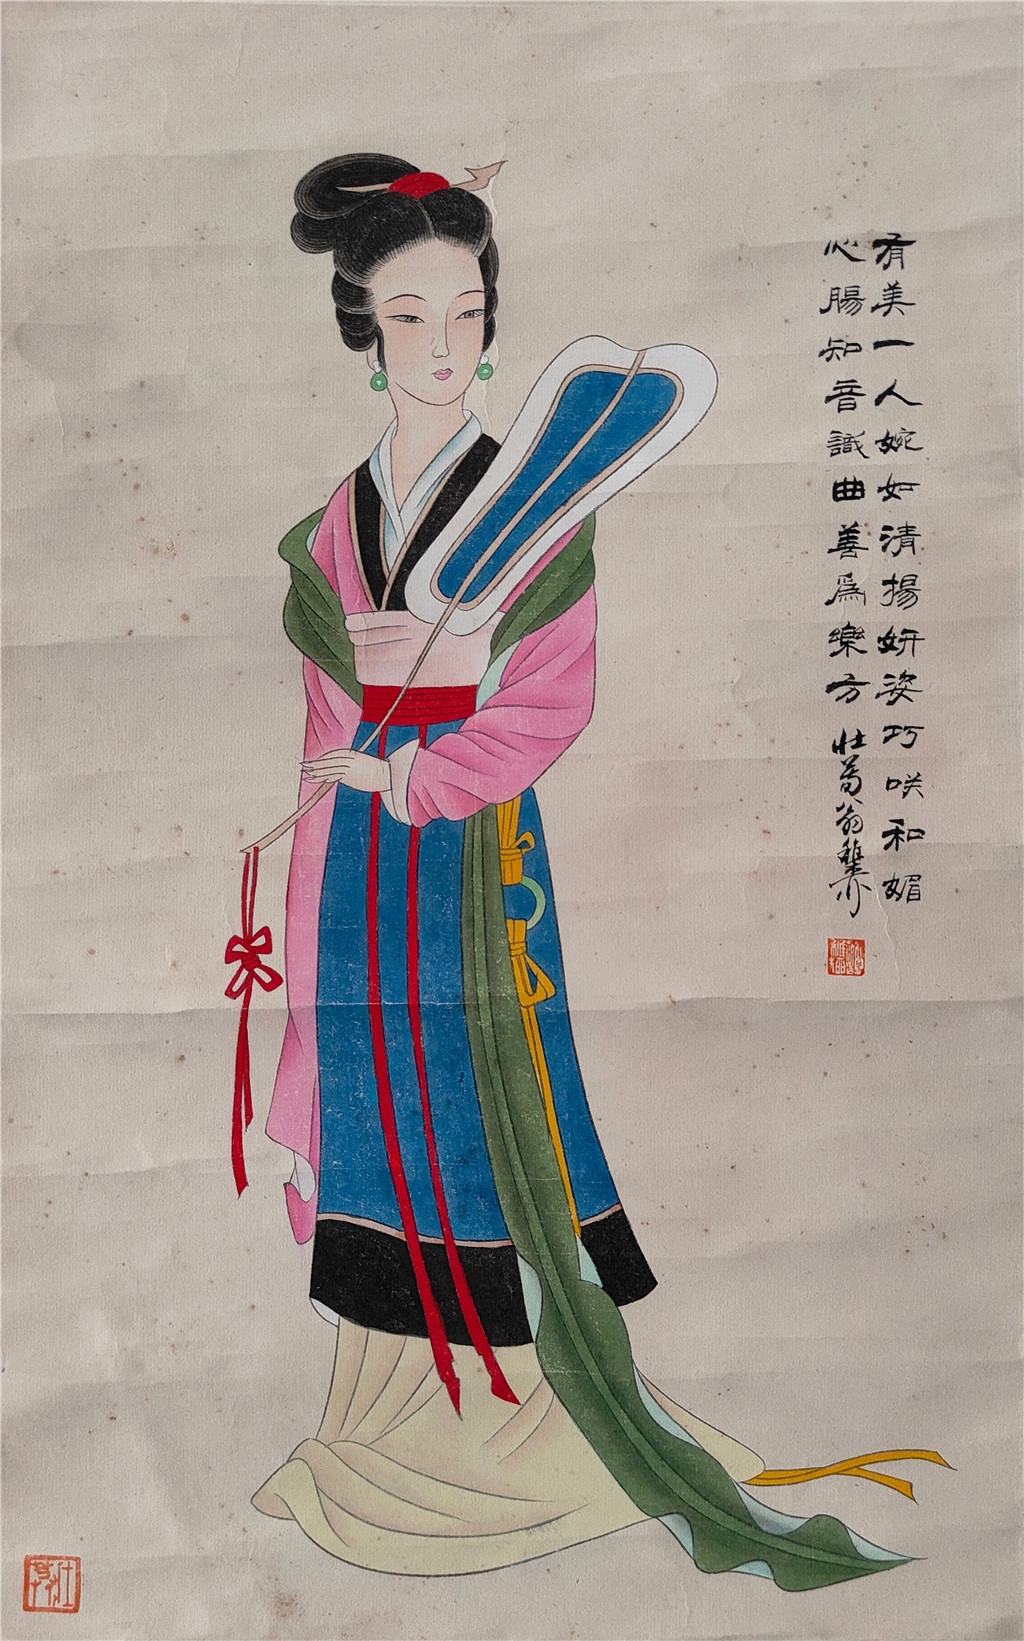 有美一人婉如清揚妍姿巧笑和媚
心腸知音識曲善為樂方